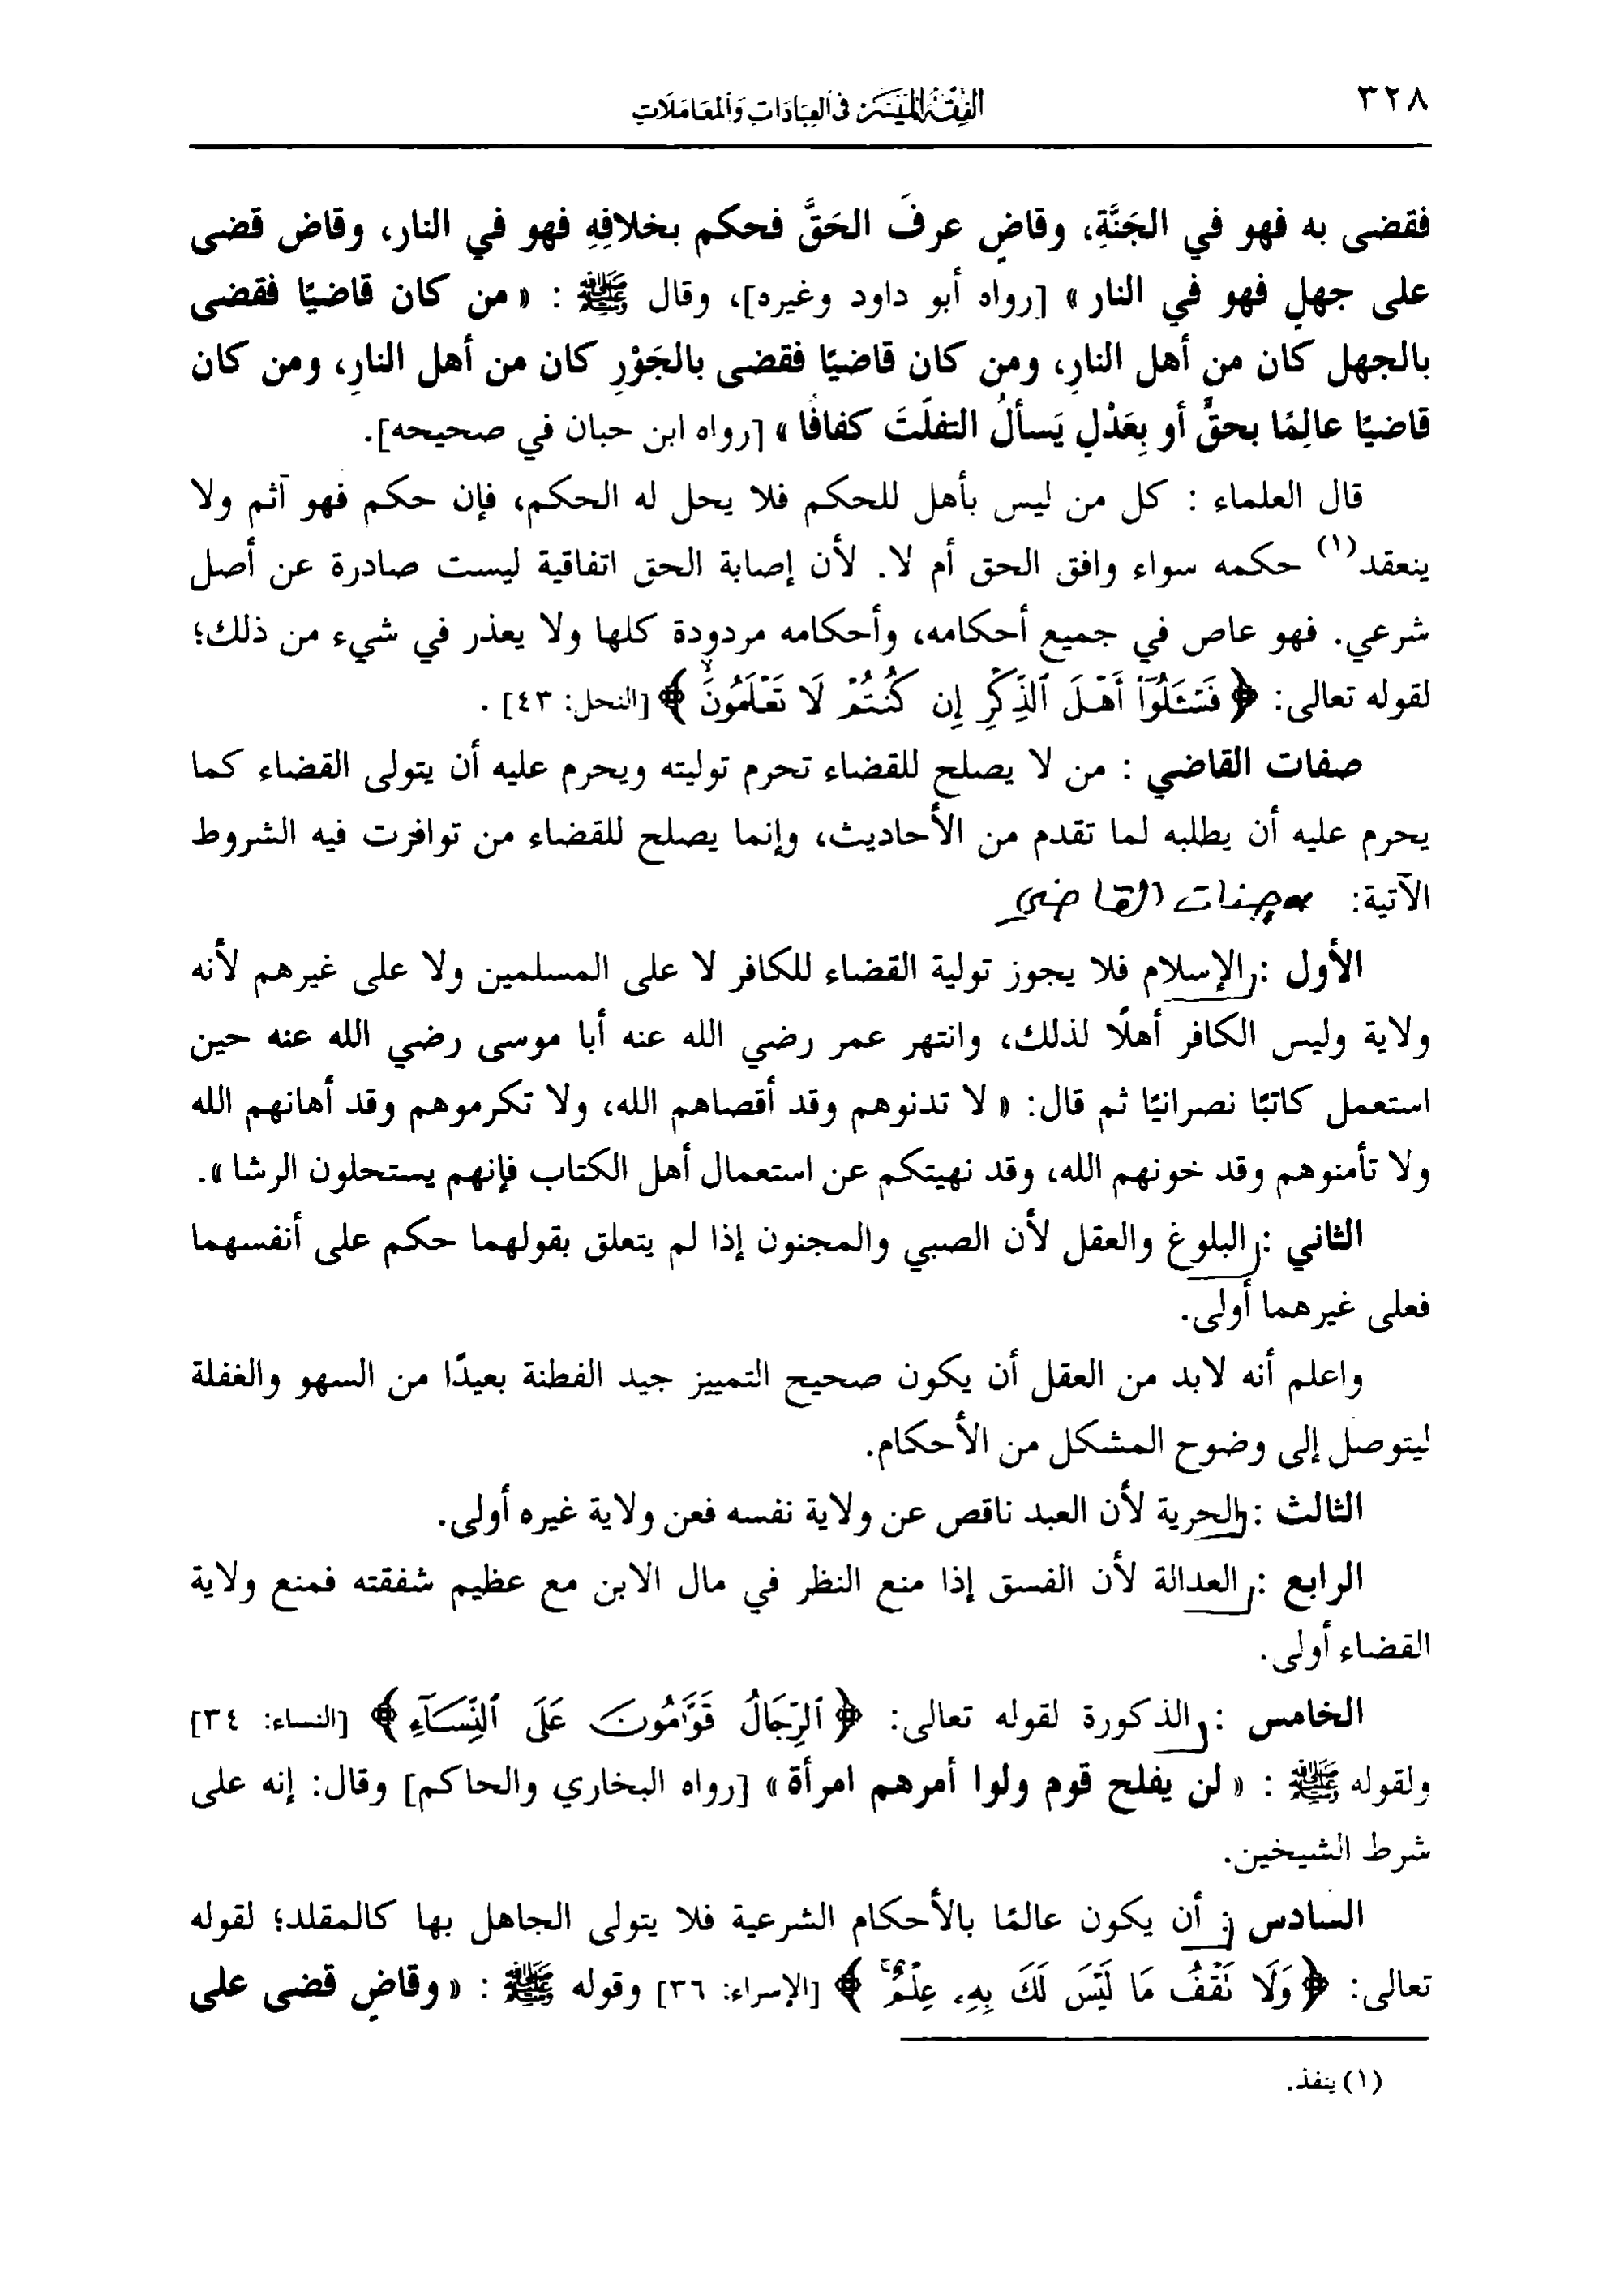 ٣٢٨
الفِقْهُ المُيَسَّر في العِبَادَاتِ وَالمُعَامَلَاتِ
فقضى به فهو في الجَنَّةِ، وقاضٍ عرفَ الحَقَّ فحكم بخلافِهِ فهو في النار، وقاض قضى
على جهلٍ فهو في النار » [رواه أبو داود وغيره]، وقال ﷺ : « من كان قاضيًا فقضى
بالجهل كان من أهل النارِ، ومن كان قاضيًا فقضى بالجَوْرِ كان من أهل النارِ، ومن كان
قاضيًا عالِمًا بحقٍّ أو بِعَدْلٍ يَسألُ التفلّتَ كفافًا » [رواه ابن حبان في صحيحه].
قال العلماء : كل من ليس بأهل للحكم فلا يحل له الحكم، فإن حكم فهو آثم ولا
ينعقد(١) حكمه سواء وافق الحق أم لا. لأن إصابة الحق اتفاقية ليست صادرة عن أصل
شرعي. فهو عاص في جميع أحكامه، وأحكامه مردودة كلها ولا يعذر في شيء من ذلك؛
لقوله تعالى: ﴿ فَسْـَٔلُوٓا۟ أَهْلَ ٱلذِّكْرِ إِن كُنتُمْ لَا تَعْلَمُونَ ﴾ [النحل: ٤٣] .
صفات القاضي : من لا يصلح للقضاء تحرم توليته ويحرم عليه أن يتولى القضاء كما
يحرم عليه أن يطلبه لما تقدم من الأحاديث، وإنما يصلح للقضاء من توافرت فيه الشروط
الآتية: صفات القاضي
الأول : الإسلام فلا يجوز تولية القضاء للكافر لا على المسلمين ولا على غيرهم لأنه
ولاية وليس الكافر أهلًا لذلك، وانتهر عمر رضي الله عنه أبا موسى رضي الله عنه حين
استعمل كاتبًا نصرانيًا ثم قال: « لا تدنوهم وقد أقصاهم الله، ولا تكرموهم وقد أهانهم الله
ولا تأمنوهم وقد خونهم الله، وقد نهيتكم عن استعمال أهل الكتاب فإنهم يستحلون الرشا ».
الثاني : البلوغ والعقل لأن الصبي والمجنون إذا لم يتعلق بقولهما حكم على أنفسهما
فعلى غيرهما أولى.
واعلم أنه لابد من العقل أن يكون صحيح التمييز جيد الفطنة بعيدًا من السهو والغفلة
ليتوصل إلى وضوح المشكل من الأحكام.
الثالث : الحرية لأن العبد ناقص عن ولاية نفسه فعن ولاية غيره أولى.
الرابع : العدالة لأن الفسق إذا منع النظر في مال الابن مع عظيم شفقته فمنع ولاية
القضاء أولى.
الخامس : الذكورة لقوله تعالى: ﴿ ٱلرِّجَالُ قَوَّٰمُونَ عَلَى ٱلنِّسَآءِ ﴾ [النساء: ٣٤]
ولقوله ﷺ : « لن يفلح قوم ولوا أمرهم امرأة » [رواه البخاري والحاكم] وقال: إنه على
شرط الشيخين.
السادس : أن يكون عالمًا بالأحكام الشرعية فلا يتولى الجاهل بها كالمقلد؛ لقوله
تعالى: ﴿ وَلَا تَقْفُ مَا لَيْسَ لَكَ بِهِۦ عِلْمٌ ۚ ﴾ [الإسراء: ٣٦] وقوله ﷺ : « وقاضٍ قضى على
(١) ينفذ.